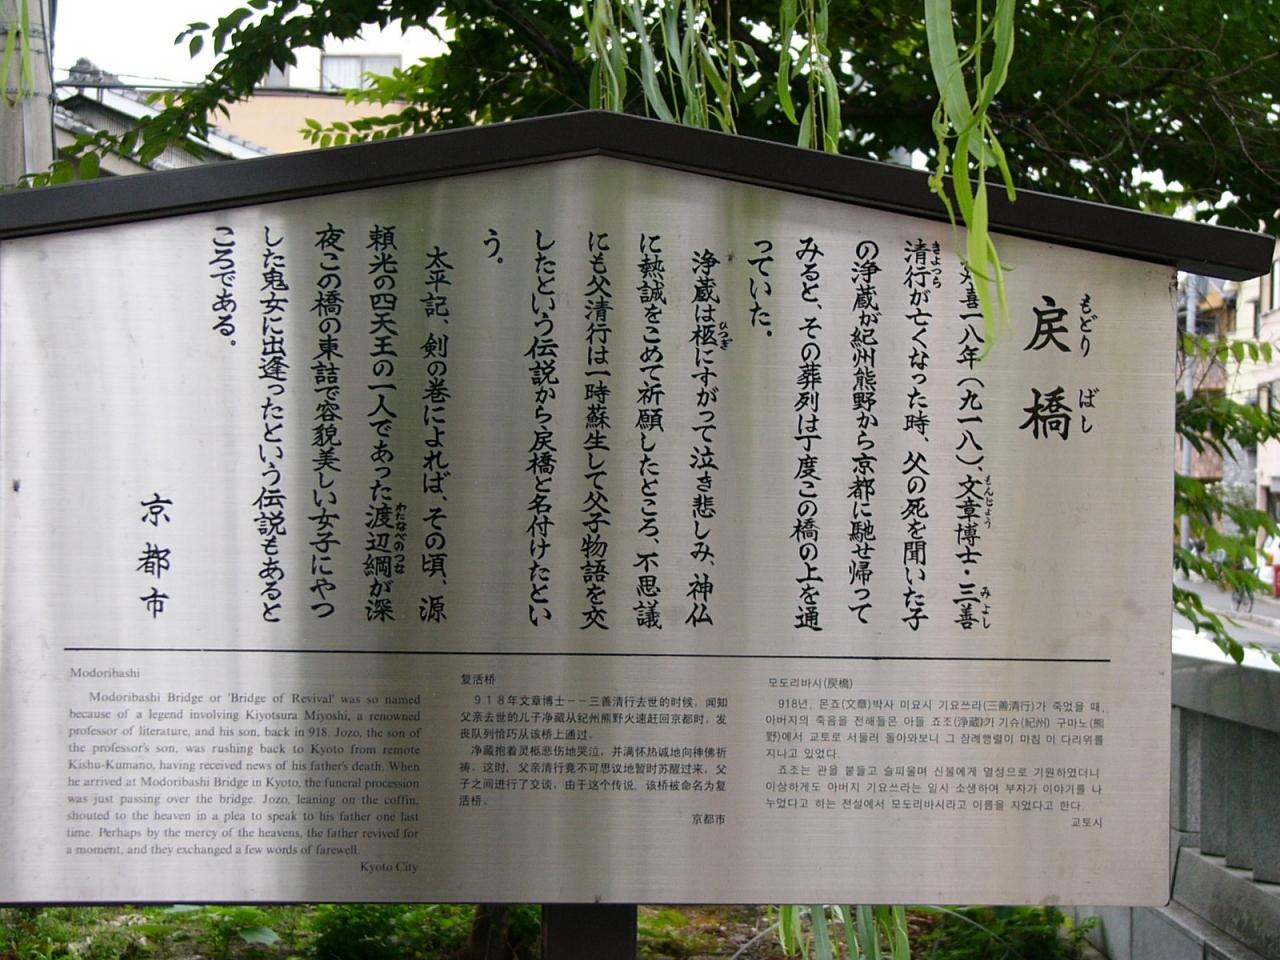 戻橋
もどりばし
喜一八年(九一八)、文章博士・三善
もんじょう
みよし
清行が亡くなった時、父の死を聞いた子
きよつら
の浄蔵が紀州熊野から京都に馳せ帰って
みると、その葬列は丁度この橋の上を通
っていた。
浄蔵は柩にすがって泣き悲しみ、神仏
ひつぎ
に熱誠をこめて祈願したところ、不思議
にも父清行は一時蘇生して父子物語を交
したという伝説から戻橋と名付けたとい
う。
太平記、剣の巻によれば、その頃、源
頼光の四天王の一人であった渡辺綱が深
わたなべのつな
夜この橋の東詰で容貌美しい女子にやつ
した鬼女に出逢ったという伝説もあると
ころである。
京都市
Modoribashi
Modoribashi Bridge or 'Bridge of Revival' was so named
because of a legend involving Kiyotsura Miyoshi, a renowned
professor of literature, and his son, back in 918. Jozo, the son of
the professor's son, was rushing back to Kyoto from remote
Kishu-Kumano, having received news of his father's death. When
he arrived at Modoribashi Bridge in Kyoto, the funeral procession
was just passing over the bridge. Jozo, leaning on the coffin,
shouted to the heaven in a plea to speak to his father one last
time. Perhaps by the mercy of the heavens, the father revived for
a moment, and they exchanged a few words of farewell.
Kyoto City
复活桥
918年文章博士--三善清行去世的时候,闻知
父亲去世的儿子净藏从纪州熊野火速赶回京都时,发
丧队列恰巧从该桥上通过。
净藏抱着灵柩悲伤地哭泣,并满怀热诚地向神佛祈
祷,这时,父亲清行竟不可思议地暂时苏醒过来,父
子之间进行了交谈,由于这个传说,该桥被命名为复
活桥。
京都市
모도리바시(戻橋)
918년, 몬죠(文章)박사 미요시 기요쓰라(三善清行)가 죽었을 때,
아버지의 죽음을 전해들은 아들 죠조(浄蔵)가 기슈(紀州) 구마노(熊
野)에서 교토로 서둘러 돌아와보니 그 장례행렬이 마침 이 다리위를
지나고 있었다.
죠조는 관을 붙들고 슬피울며 신불에게 열성으로 기원하였더니
이상하게도 아버지 기요쓰라는 일시 소생하여 부자가 이야기를 나
누었다고 하는 전설에서 모도리바시라고 이름을 지었다고 한다.
교토시